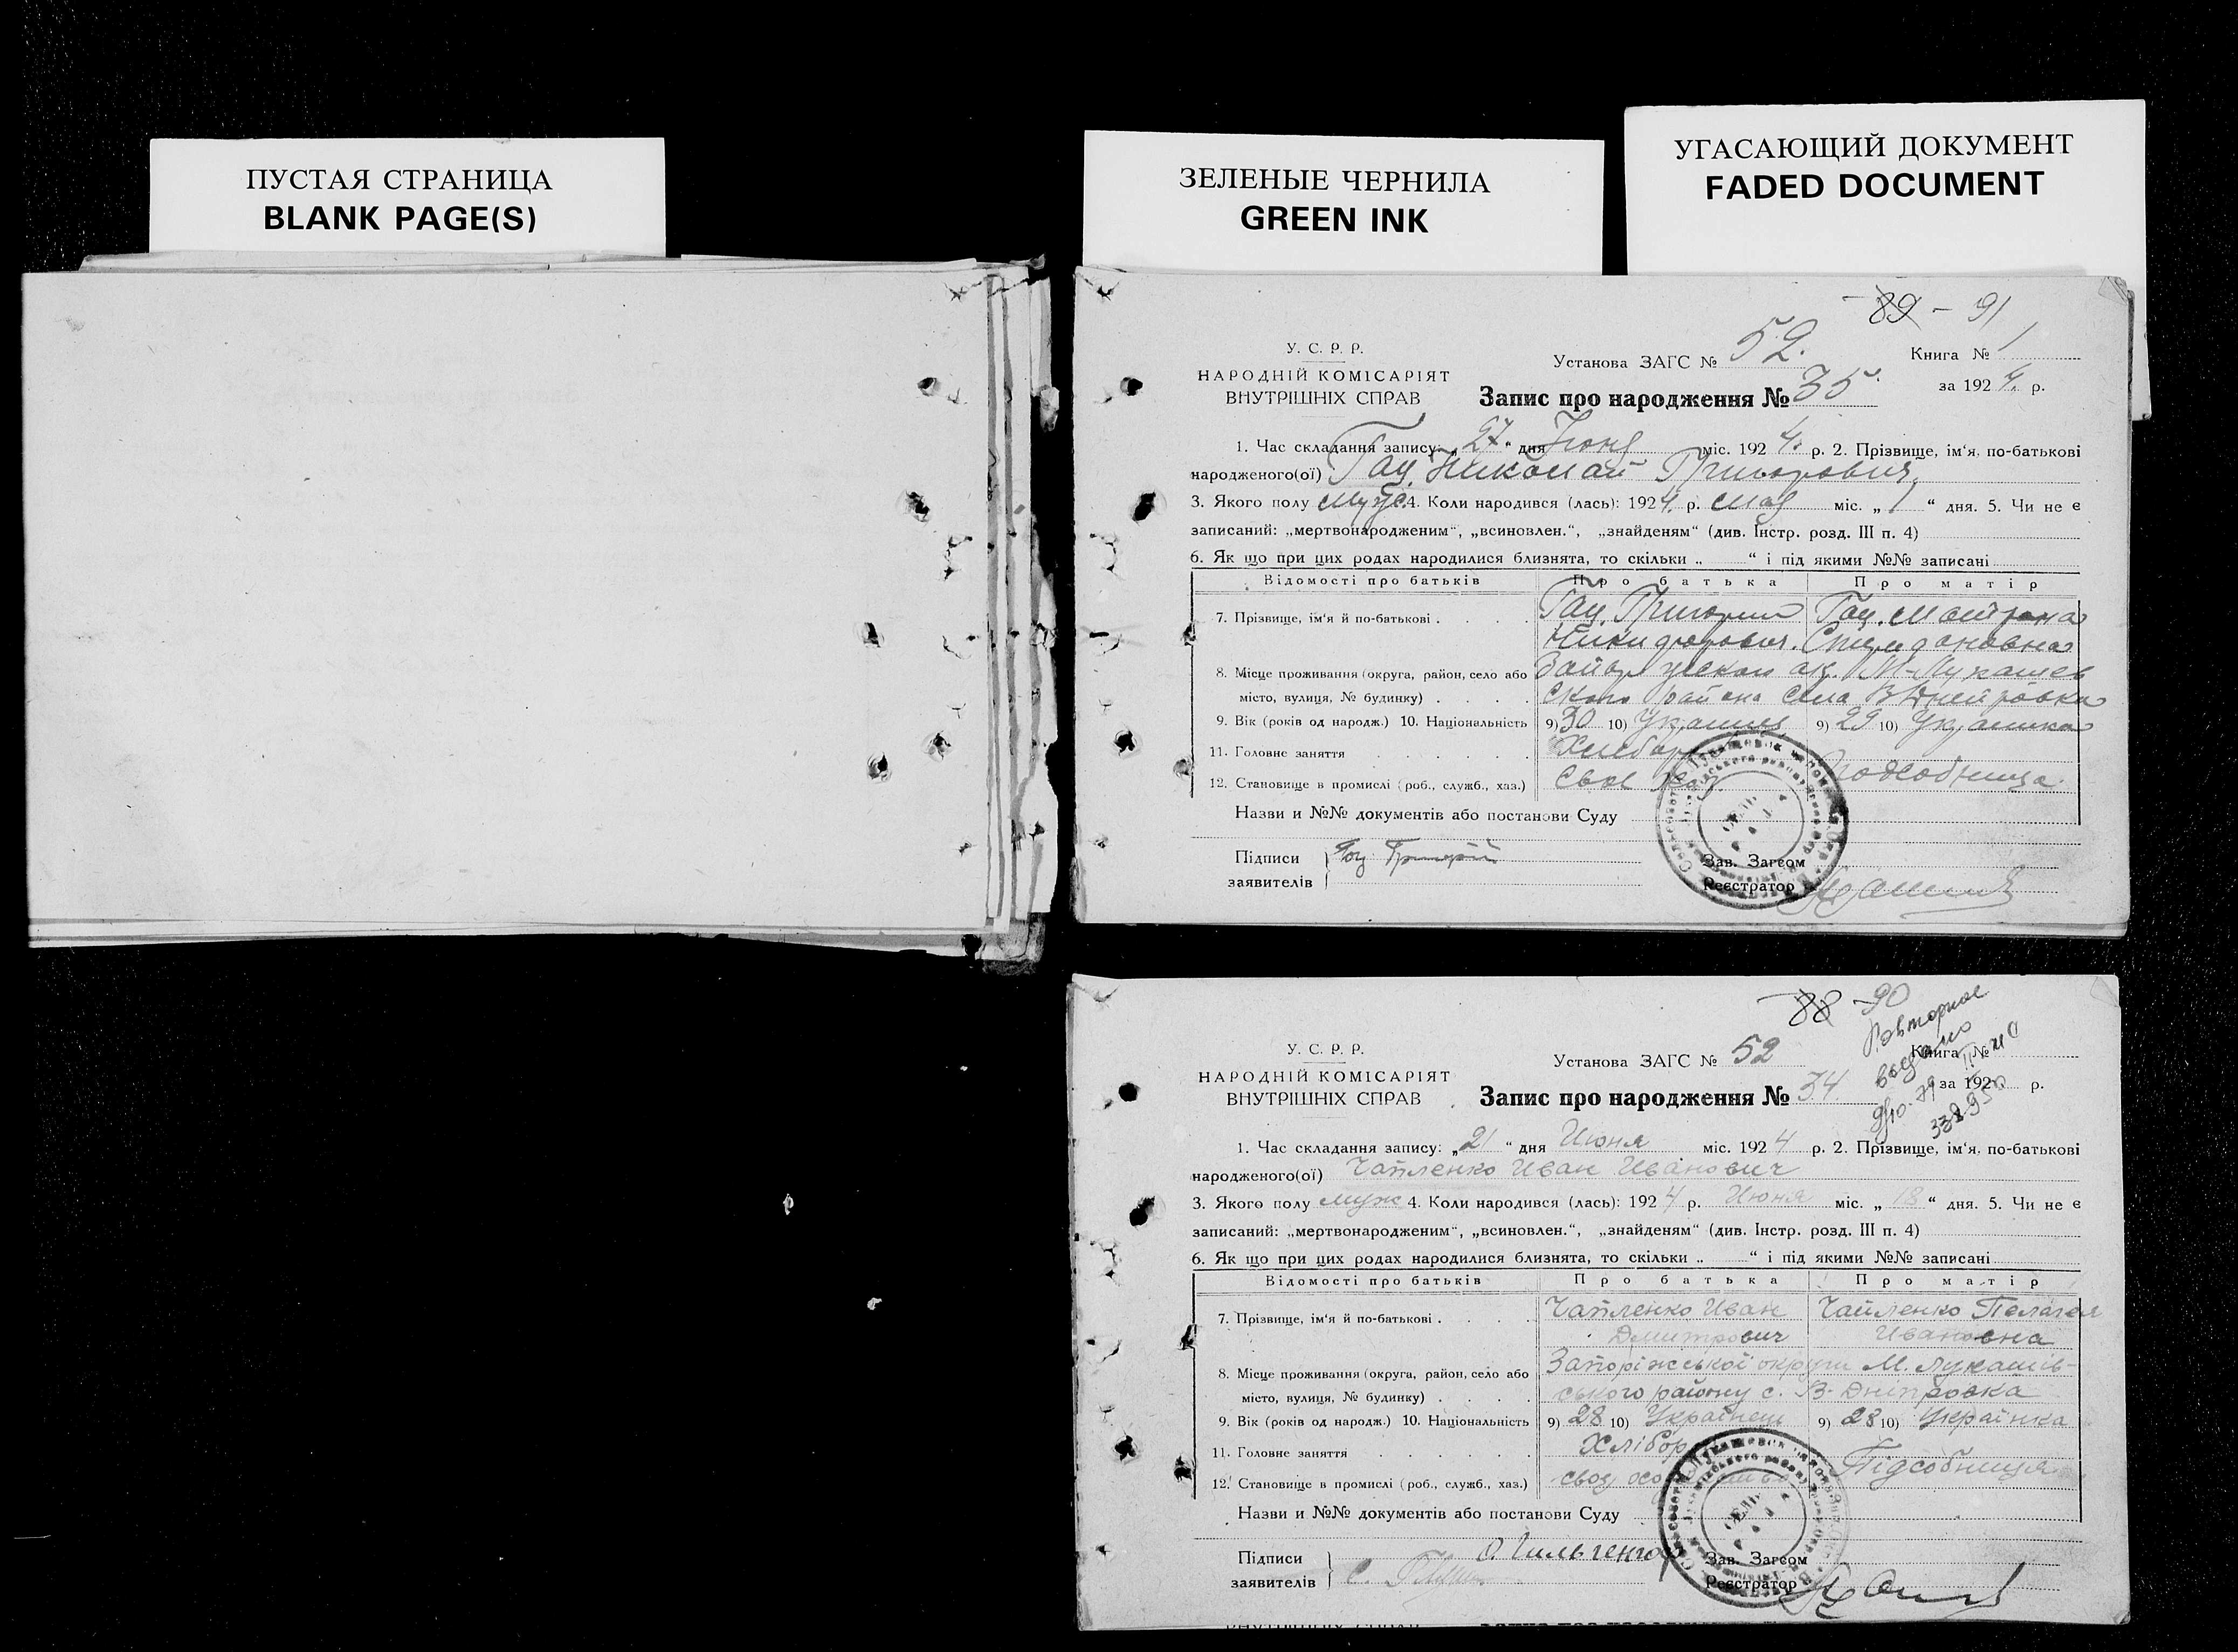 ПУСТАЯ СТРАНИЦА
BLANK PAGE(S)
ЗЕЛЕНЫЕ ЧЕРНИЛА
GREEN INK
УГАСАЮЩИЙ ДОКУМЕНТ
FADED DOCUMENT
89 - 91
У. С. Р. Р.
НАРОДНІЙ КОМІСАРІЯТ
ВНУТРІШНІХ СПРАВ
Установа ЗАГС № 52.
Книга № 1
Запис про народження № 35
за 1924. р.
1. Час складання запису: „ 27 “ дня Июня міс. 1924. р. 2. Прізвище, ім‘я, по-батькові
народженого(ої) Гац. Николай Григорович
3. Якого полу муж. 4. Коли народився (лась): 1924. р. мая міс. „ 1 “ дня. 5. Чи не є
записаний: „мертвонародженим“, „всиновлен.“, „знайденям“ (див. Інстр. розд. III п. 4)
6. Як що при цих родах народилися близнята, то скільки „ “ і під якими №№ записані
Відомості про батьків Про батька Про матір
7. Прізвище, ім‘я й по-батькові . . . . Гац. Григорий Гац.
Никифорович.
8. Місце проживання (округа, район, село або ок. М-Лукашев
місто, вулиця, № будинку) . . . . ского района села В Днепровка
9. Вік (років од народж.) 10. Національність 9) 30 10) Украинец 9) 29 10) Украинка
11. Головне заняття . . . . . . Хлебор
12. Становище в промислі (роб., служб., хаз.) Свое хаз. Подсобница.
Назви и №№ документів або постанови Суду
Підписи Гац Григорій
заявителів
Зав. Загсом
Реєстратор
88 - 90
Повторное
выдано
У. С. Р. Р.
НАРОДНІЙ КОМІСАРІЯТ
ВНУТРІШНІХ СПРАВ
Установа ЗАГС № 52
Книга №
Запис про народження № 34
за 192 р.
1. Час складання запису: „ 21 “ дня Июня міс. 1924 р. 2. Прізвище, ім‘я, по-батькові
народженого(ої) Чапленко Иван Иванович
3. Якого полу муж 4. Коли народився (лась): 1924 р. Июня міс. „ 18 “ дня. 5. Чи не є
записаний: „мертвонародженим“, „всиновлен.“, „знайденям“ (див. Інстр. розд. III п. 4)
6. Як що при цих родах народилися близнята, то скільки „ “ і під якими №№ записані
Відомості про батьків Про батька Про матір
7. Прізвище, ім‘я й по-батькові . . . . Чапленко Иван Чапленко Пелагея
Дмитрович Ивановна
8. Місце проживання (округа, район, село або Запоріжської округи М. Лукашів-
місто, вулиця, № будинку) . . . . ського району с. В-Дніпровка
9. Вік (років од народж.) 10. Національність 9) 28 10) Українец 9) 28 10) Українка
11. Головне заняття . . . . . . Хлібор
12. Становище в промислі (роб., служб., хаз.) Підсобниця
Назви и №№ документів або постанови Суду
Підписи
заявителів
Зав. Загсом
Реєстратор